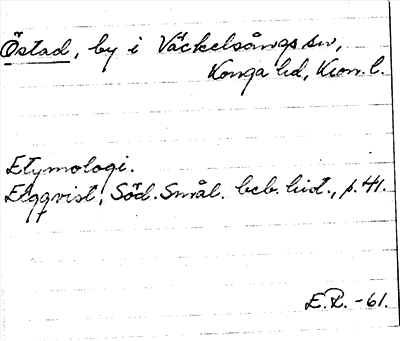 Östad, by i Väckelsångs sn,
Konga hd, Kron. l.
Etymologi.
Elgqvist, Söd. Smål. beb. hist., p. 41.
E.R. -61.